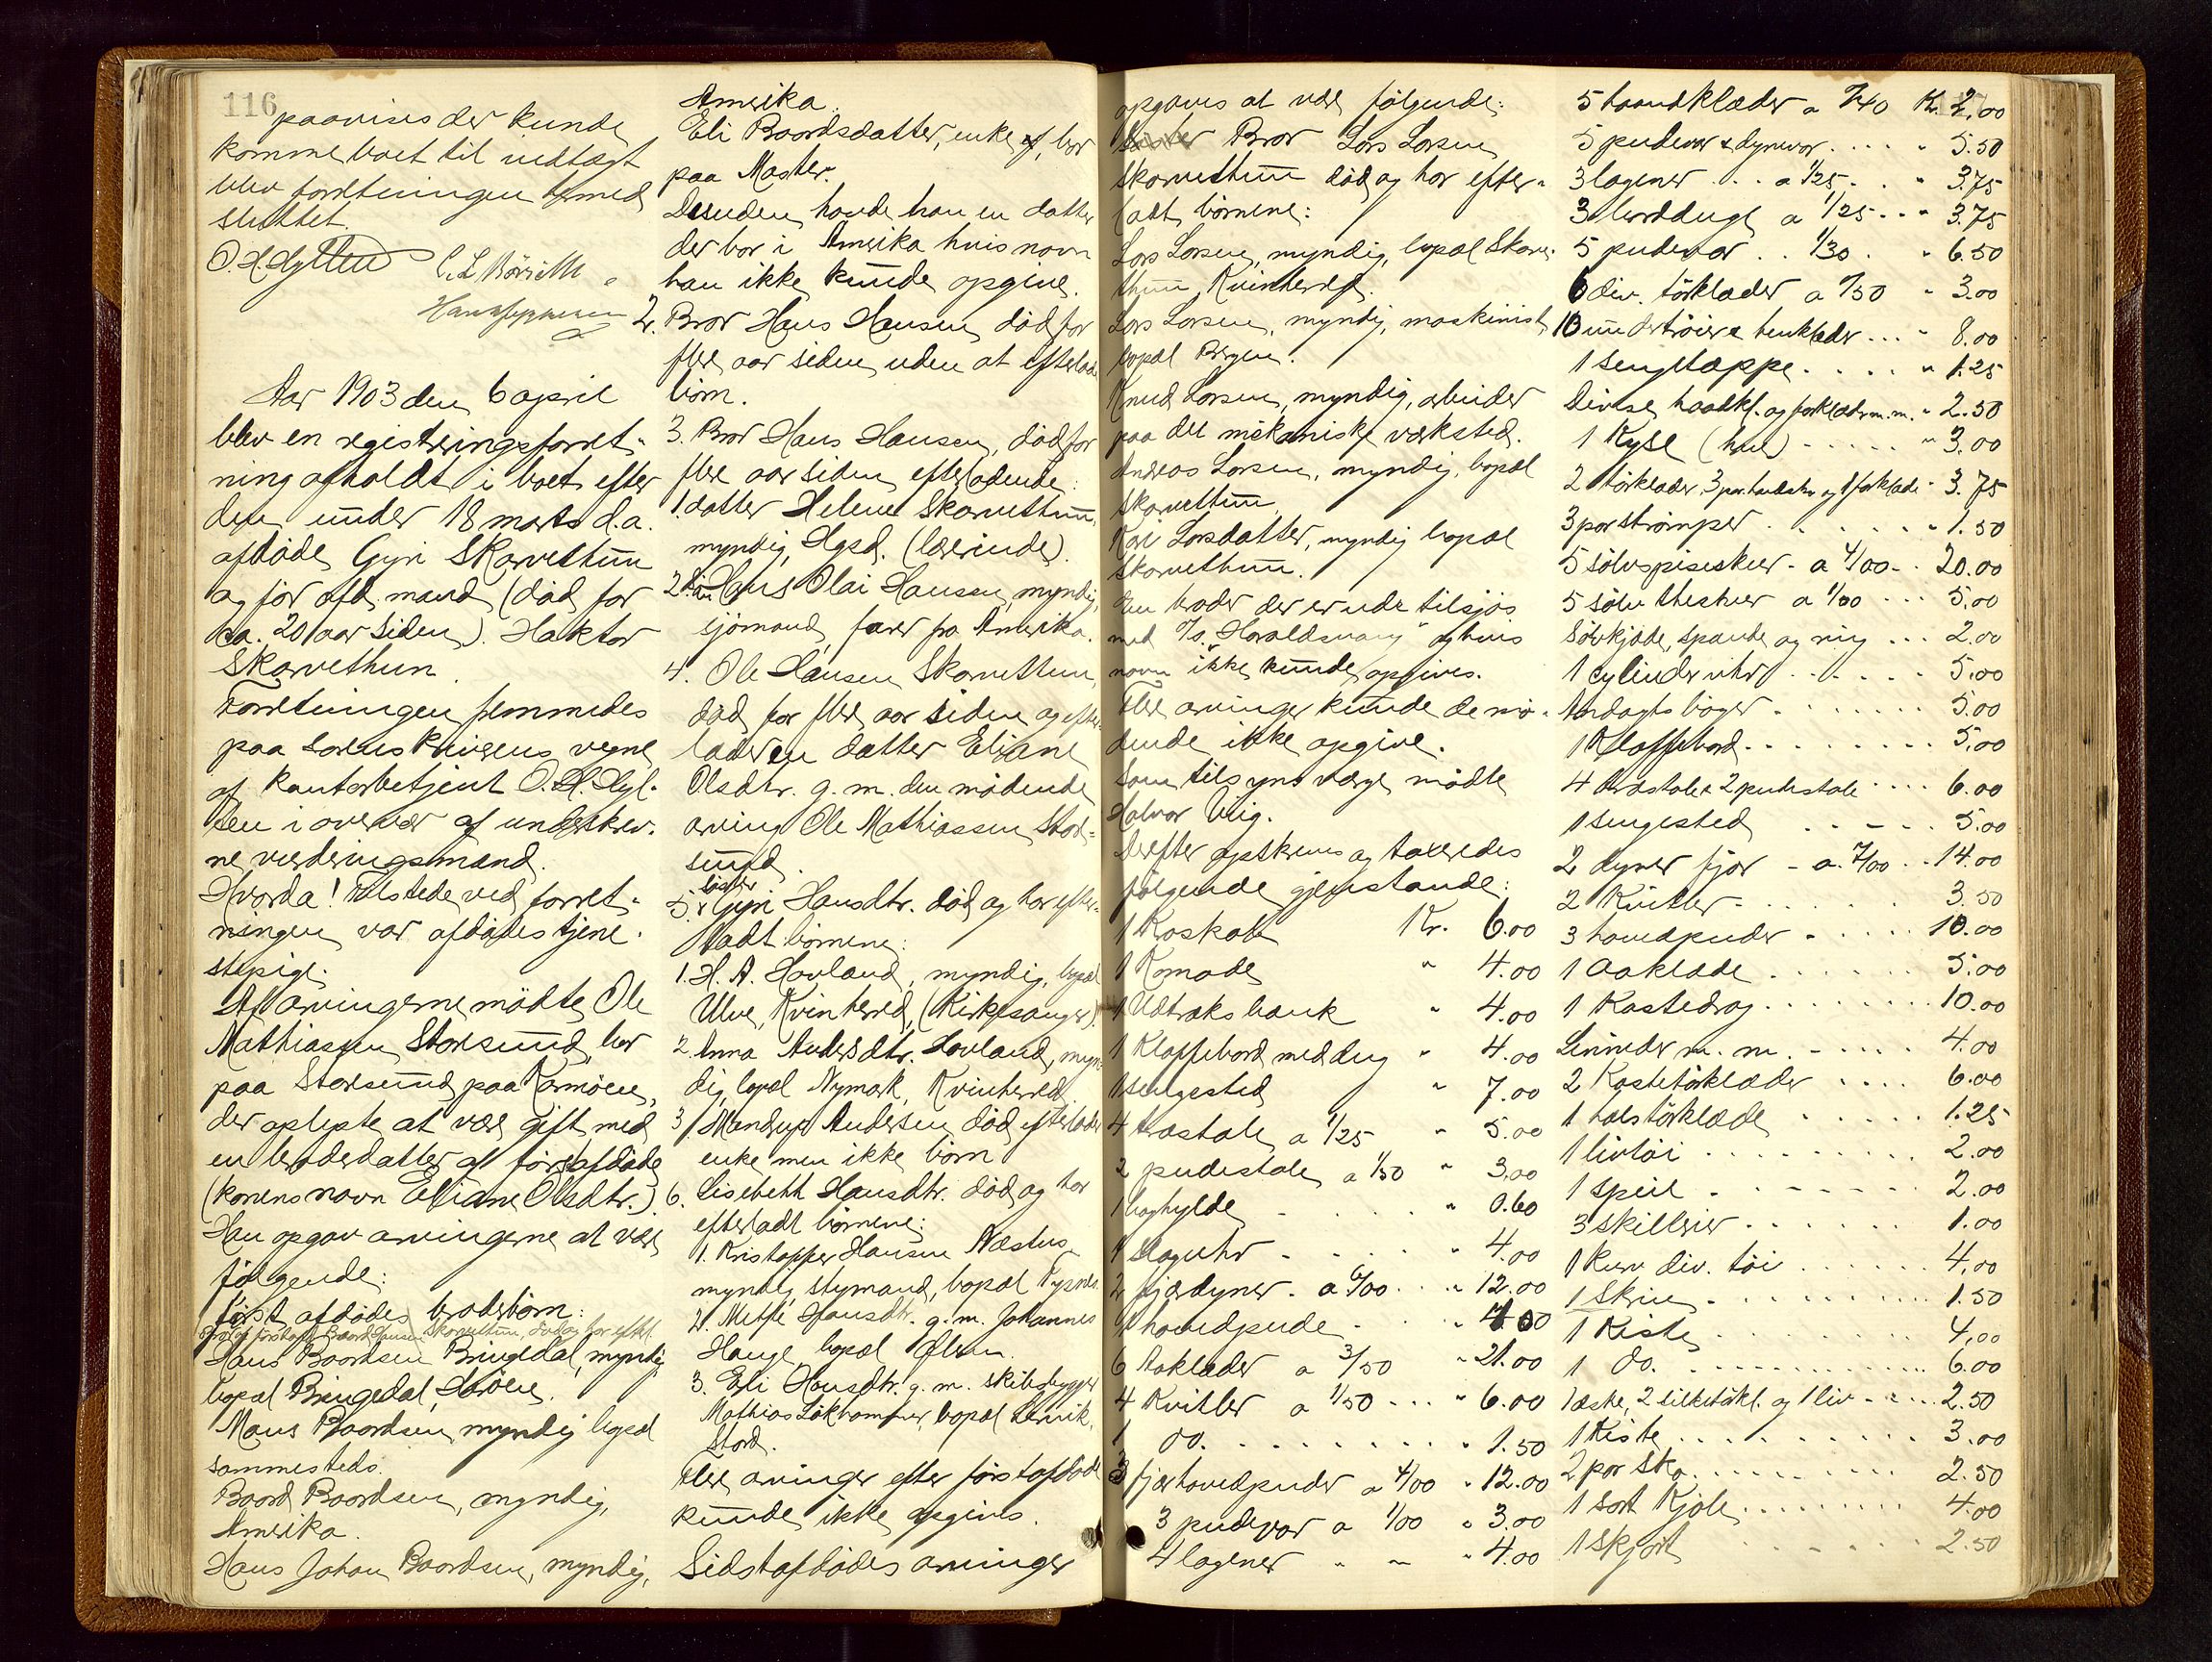 116
paavises der kunde
komme boet til indtægt
blev forretningen hermed
sluttet.
O. H. Hylten
Aar 1903 den 6 april
blev en registreringsforret-
ning afholdt i boet efter
den under 18 marts d.a.
afdöde Gyri Skarvethun
og för afd. mand (död for
ca. 20 aar siden). Haktor
Skarvethun.
Forretningen fremmedes
paa sorenskriverens vegne
af kontorbetjent O. H. Hyl-
ten i overvær af underskrev-
ne vurderingsmænd.
Hvorda! Tilstede ved forret-
ningen var afdödes tjene-
stepige.
Af arvingerne mödte Ole
Mathiassen Storesund, bor
paa Storesund paa Karmöen,
der oplyste at være gift med
en broderdatter af förstafdöde
(konens navn Eliane Olsdtr.)
Han opgav arvingerne at være
følgende:
först afdödes broderbörn:
Bror af förstafd. Baard Hansen Skarvethun, död og har efterl.
Hans Baardsen Bringedal, myndig
bopæl Bringedal,
Mons Baardsen myndig bopæl
sammesteds.
Baard Baardsen, myndig,
Amerika.
Hans Johan Baardsen, myndig,
Amerika.
Eli Baardsdatter, enke, bor
paa Moster.
Desuden havde han en datter
der bor i Amerika hvis navn
han ikke kunde opgive.
2. Bror Hans Hansen död for
flere aar siden uden at efterlade
börn.
3. Bror Hans Hansen, död for
flere aar siden efterladende:
1. datter Helene Skarvethun,
myndig, Hgsd. (lærinde).
2. Hans Olai Hansen, myndig,
sjömand, farer fra Amerika.
4. Ole Hansen Skarvethun,
död for flere aar siden og efter-
lader en datter Eliane
Olsdtr. g. m. den mödende
arving Ole Mathiassen Stor-
sund.
5. söster Gyri Hansdtr. död og har efter-
ladt börnene:
1. H. A. Hovland, myndig, bopæl
Ulve, Kvinherred, (Kirkesanger).
2. Anna Andersdtr. Hovland, myn-
dig, bopæl Nymark, Kvinherred.
3. Mandrup Andersen död efterlader
enke men ikke börn
6. Lisebeth Hansdtr. död og har
efterladt börnene:
1. Kristoffer Hansen Næstus
myndig, styrmand, bopæl
2. Mette Hansdtr. g. m. Johannes
Hauge bopæl Ølen.
3. Eli Hansdtr. g. m. skibsbygger
Mathias Lökhammer, bopæl Lervik,
Stord.
Flere arvinger efter förstafdöde
kunde ikke opgives.
Sidstafdödes arvinger
opgaves at være følgende:
Bror Lars Larsen
Skarvethun död og har efter-
ladt börnene:
Lars Larsen, myndig, bopæl Skarve-
thun, Kvinherred.
Lars Larsen, myndig, maskinist,
bopæl Bergen.
Knud Larsen, myndig, arbeider
paa det mekaniske værksted.
Andreas Larsen, myndig, bopæl
Skarvethun.
Kari Larsdatter, myndig bopæl
Skarvethun.
En broder der er ude tilsjös
med "Haraldsvang" og hvis
navn ikke kunde opgives.
Flere arvinger kunde de mö-
dende ikke opgive.
Som tilsynsværge mödte
Halvor Vig.
Derefter opskreves og taxeredes
følgende gjenstande:
1 Roskab Kr. 6.00
1 Komode " 4.00
1 Udtræksbænk " 4.00
1 Klaffebord med dug " 4.00
1 sengested " 7.00
4 træstole a 1/25 " 5.00
2 pudestole a 1/50 " 3.00
1 boghylde " 0.60
1 slaguhr " 4.00
2 fjærdyner a 6/00 " 12.00
1 hovedpude " 4.00
6 Aaklæder a 3/50 " 21.00
4 Kvitler a 1/50 " 6.00
1 do. " 1.50
3 fjærhovedpuder a 4/00 " 12.00
3 pudevar a 1/00 " 3.00
4 lagener " " 4.00
5 haandklæder a 0/40 Kr. 2.00
5 pudevar & dynevar " 5.50
3 lagener a 1/25 " 3.75
3 borddugt a 1/25 " 3.75
5 pudevar 1/30 " 6.50
6 div. törklæder a 0/50 " 3.00
10 undertröier & benklæder " 8.00
1 sengetæppe " 1.25
Diverse haandkl. og forklæder m. m. " 2.50
1 Kyse (hue) " 3.00
2 törklæder, 3 par handsker og 1 forklæde " 3.75
3 par strömper " 1.50
5 sölvspiseskeer a 4/00 20.00
5 sölv theskeer a 1/00 5.00
Sölvkjæde, spænde og ring 2.00
1 cylinderuhr 5.00
Andagtsböger 5.00
1 Klaffebord 5.00
4 træstole & 2 pudestole 6.00
1 sengested 5.00
2 dyner fjær a 7/00 14.00
2 Kvitler 3.50
3 hovedpuder 10.00
1 Aaklæde 5.00
1 Kastedrag 10.00
Linneder m. m. 4.00
2 Kastetörklæder 6.00
1 halstörklæde 1.25
1 livtöi 2.00
1 speil 2.00
3 skillerier 1.00
1 Kurv div. töi 4.00
1 Skrin 1.50
1 Kiste 4.00
1 do. 6.00
1 æske, 2 silketörkl. og 1 liv 2.50
1 Kiste 3.00
2 par sko 2.50
1 sort Kjole 4.00
1 skjört 2.50